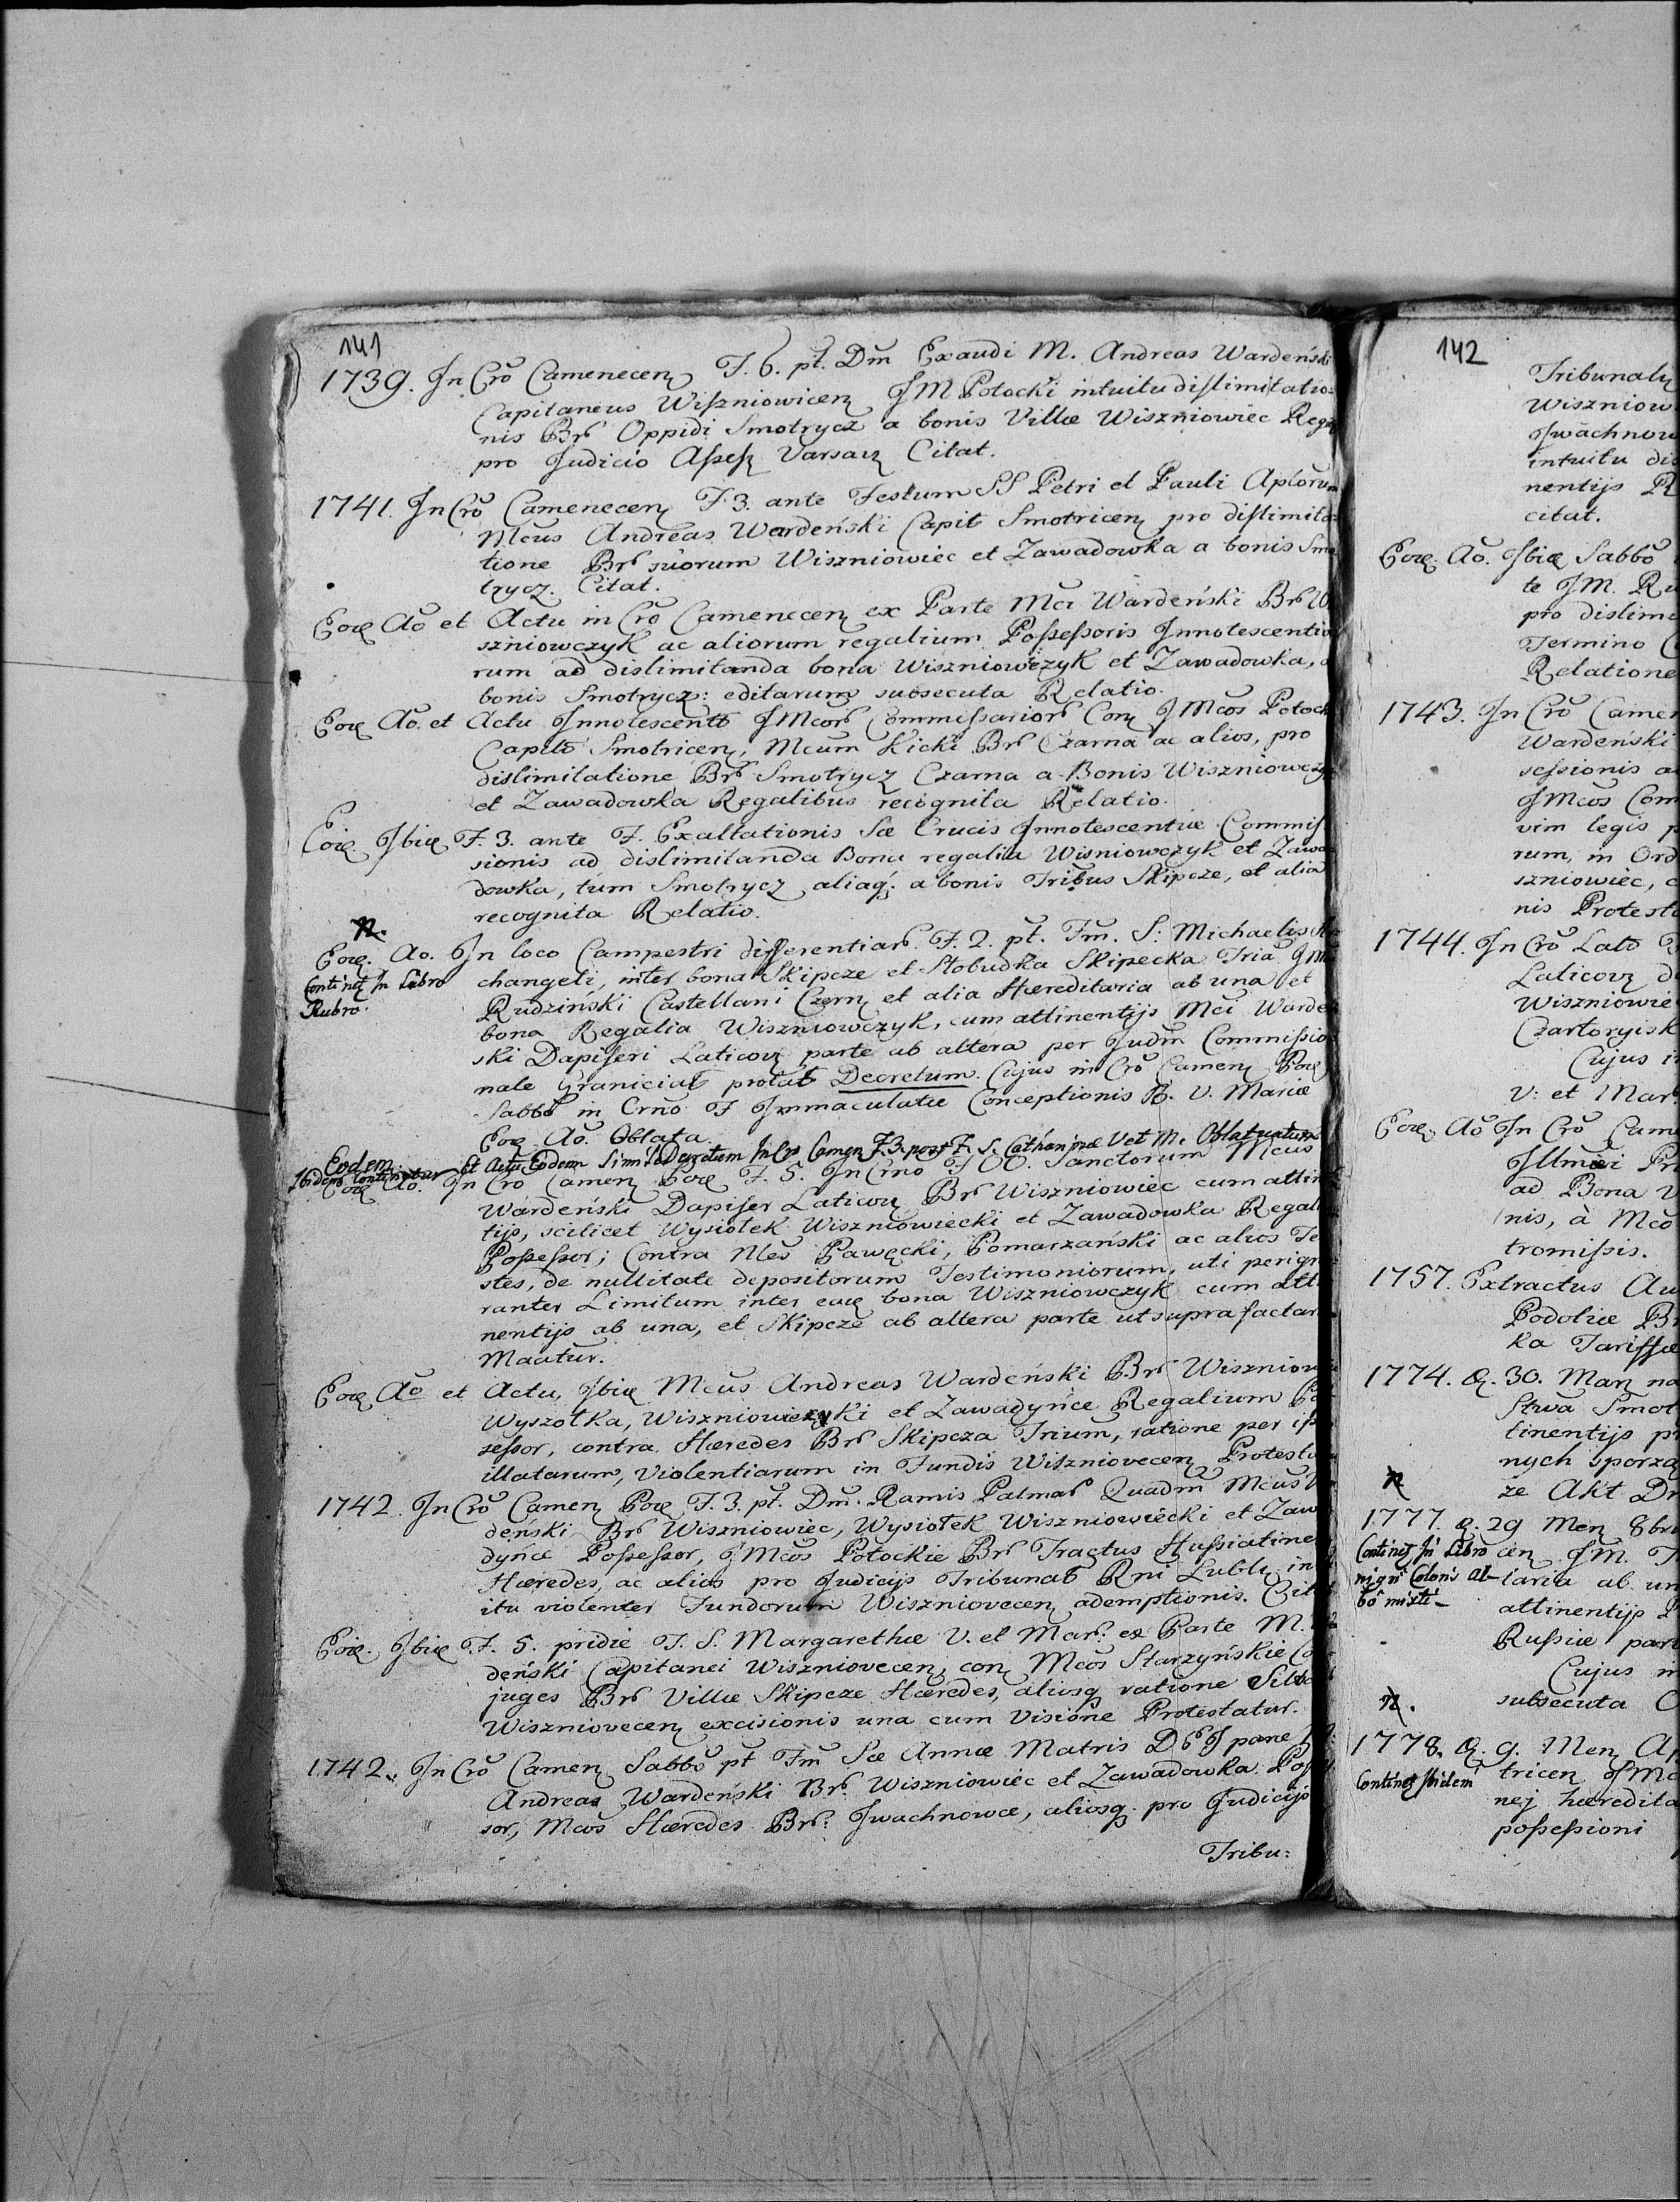 141
1739. In Cro Camenecen F. 6. pt. Dm Exaudi M. Andreas Wardeński
Capitaneus Wiszniowicen JM Potocki intuitu dislimitatio:
nis Br Oppidi Smotrycz a bonis Villæ Wiszniowiec Rega
pro Judicio Assess Varsav Citat.
1741. In Cro Camenecen F 3. ante Festum SS Petri et Pauli Aplorum
Mcus Andreas Wardeński Capit Smotricen pro dislimita:
tione Br suorum Wiszniowiec et Zawadowka a bonis Smo
trycz. Citat.
Eoe Ao et Actu in Cro Camenecen ex Parte Mci Wardeński Br W
szniowczyk ac aliorum regalium Possessoris Innotescentia
rum ad dislimitanda bona Wiszniowczyk et Zawadowka, a
bonis Smotrycz: editarum subsecuta Relatio.
Eoe Ao. et Actu Innotescent JMcor Commissarior Con JMcos Potock
Capit Smotricen, Mcum Kicki Br Czarna ac alios, pro
dislimitatione Br Smotrycz Czarna a Bonis Wiszniowczyk
et Zawadowka Regalibus recognita Relatio.
Eoe Ibie F. 3. ante F. Exaltationis Sæ Crucis Innotescentiæ Commis
sionis ad dislimitanda Bona regalia Wisniowczyk et Zawa
dowka, tum Smotrycz aliaq. a bonis Tribus Skipcze, et alia
recognita Relatio.
n.
Eoe. Ao. In loco Campestri differentiar. F. 2. pt. Fm. S: Michaelis Ar
Continet In Libro
Rubro.
changeli, inter bona Skipcze et Slobudka Skipecka Tria JM
Rudziński Castellani Czern et alia Hæreditaria ab una et
bona Regalia Wiszniowczyk, cum attinentijs Mci Warde
ski Dapiferi Laticov parte ab altera per Judm Commissio
nale Graniciat prolat Decretum. Cujus in Cro Camen Eoe
Sabbo in Crno F Immaculatæ Conceptionis B. V. Mariæ
Eoe Ao. Oblata.
Eodem Et Actu Eodem Simile Decretum In Cro Camen F. 3. post F. S. Catharinæ V et M. Oblatutum
Ibidem Continetur
Eoe Ao. In Cro Camen Eoe F. 5. In Crno F OO. Sanctorum Mcus
Wardeński Dapifer Laticov Br Wiszniowiec cum attin
tijs, scilicet Wysiołek Wiszniowiecki et Zawadowka Regali
Possessor; Contra Nles Pawęcki, Pomarzański ac alios Te
stes, de nullitate depositorum Testimoniorum, uti perigno
ranter Limitum inter eae bona Wiszniowczyk cum atti
nentijs ab una, et Skipcze ab altera parte ut supra factar
Maatur.
Eoe Ao et Actu, Ibie Mcus Andreas Wardeński Br Wisznio
Wyszołka, Wiszniowieczyki et Zawadyńce Regalium Po
sessor, contra Hæredes Br Skipcza Trium, ratione per ip
illatarum, violentiarum in Fundis Wiszniovecen Protesta
1742. In Cro Camen Eoe F. 3. pt. Dm. Ramis Palmar Quadm Mcus
deński Br Wiszniowiec, Wysiołek Wiszniowiecki et Zaw
dyńce Possessor, JMcos Potockie Br Tractus Hussiatine
Hæredes, ac alios pro Judicijs Tribunal Rni Lubl in
itu violenter Fundorum Wiszniovecen ademptionis. Cit
Eoe. Ibie F. 5. pridie F. S. Margarethæ V. et Mar. ex Parte M.
deński Capitanei Wiszniovecen, con Mcos Starzyńskie Co
juges Br Villæ Skipcze Hæredes, aliosq ratione Silva
Wiszniovecen excisionis una cum Visione Protestatur.
1742. In Cro Camen Sabbo pt Fm Sæ Annæ Matris
Andreas Wardeński Br. Wiszniowiec et Zawadowka Pos
sor, Mcos Hæredes Br. Iwachnowce, aliosq. pro Judicijs
Tribu:
142
Tribunal
Wiszniow
Iwachnow
intuitu di
nentijs R
citat.
Eoe. Ao. Ibie Sabbo
te JM. Ru
pro dislim
Termino
Relatione
1743. In Cro Camen
Wardeński
sessionis a
JMcos Com
vim legis p
rum, in Ord
szniowiec, c
nis Protesta
1744. In Cro Lat
Laticov d
Wiszniowie
Czartoryisk
Cujus i
V: et Mar.
Eoe. Ao In Cro Cam
Illmæi Pr
ad Bona
nis, à Mco
tromissis.
1757. Extractus Au
Podoliæ B
ka Tariffæ
1774. D. 30. Mar na
Stwa Smot
tinentijs p
nych sporza
n
ze Akt D
1777. D. 29 Men 8br
Continet In Libro
nigri Coloris al-
bo mixti-
cen JM. T
laria ab un
attinentijs
Russiæ par
Cujus in
n.
subsecuta
1778. D. 9. Men A
Continet Ibidem
tricen JMc
nej hæredita
possessioni